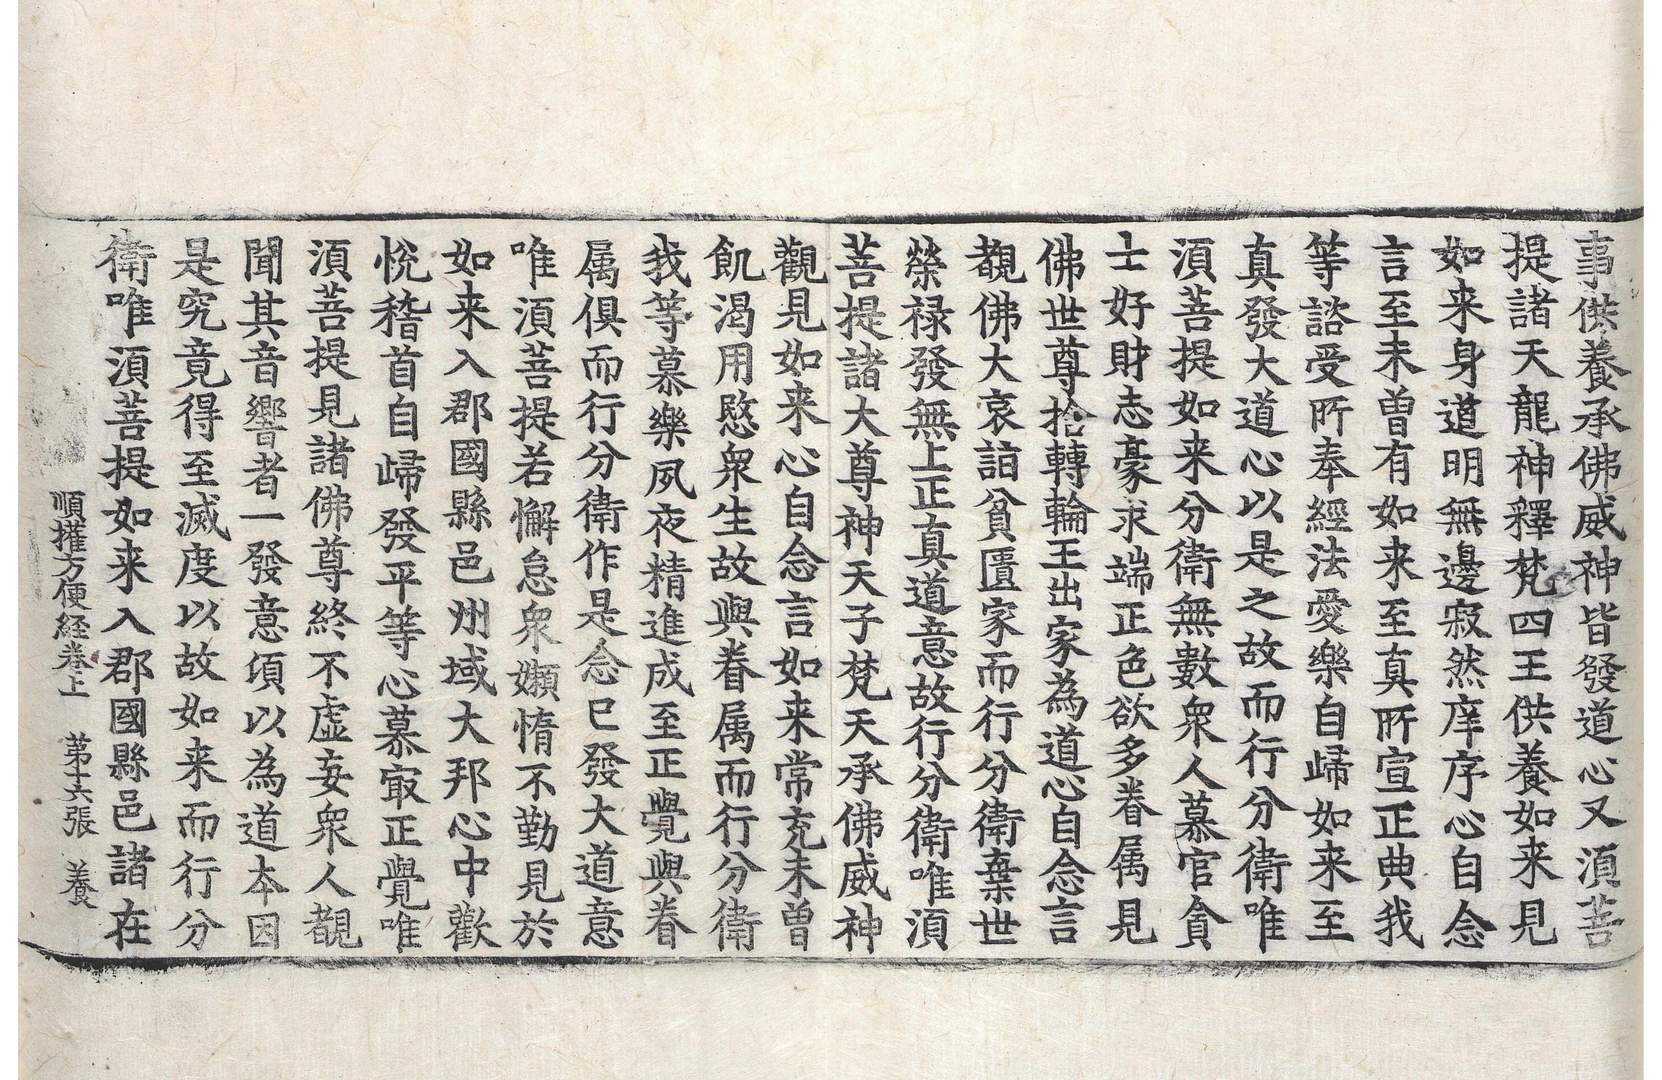 事供養承佛威神皆發道心又須菩
提諸天龍神釋梵四王供養如来見
如来身道明無邊寂然庠序心自念
言至未曽有如来至真所宣正典我
等諮受所奉經法愛樂自歸如来至
真發大道心以是之故而行分衛唯
須菩提如来分衛無數衆人慕官貪
士好財志豪求端正色欲多眷属見
佛世尊捨轉輪王出家為道心自念言
覩佛大哀詣貧匱家而行分衛棄世
榮禄發無上正真道意故行分衛唯須
菩提諸大尊神天子梵天承佛威神
觀見如来心自念言如来常充未曽
飢渴用愍衆生故與眷属而行分衛
我等慕樂夙夜精進成至正覺與眷
属俱而行分衛作是念已發大道意
唯須菩提若懈怠衆嬾惰不勤見於
如来入郡國縣邑州域大邦心中歡
悅稽首自歸發平等心慕㝡正覺唯
須菩提見諸佛尊終不虚妄衆人覩
聞其音響者一發意頃以為道本因
是究竟得至滅度以故如来而行分
衛唯須菩提如来入郡國縣邑諸在
順權方便經卷上 第十六張 養